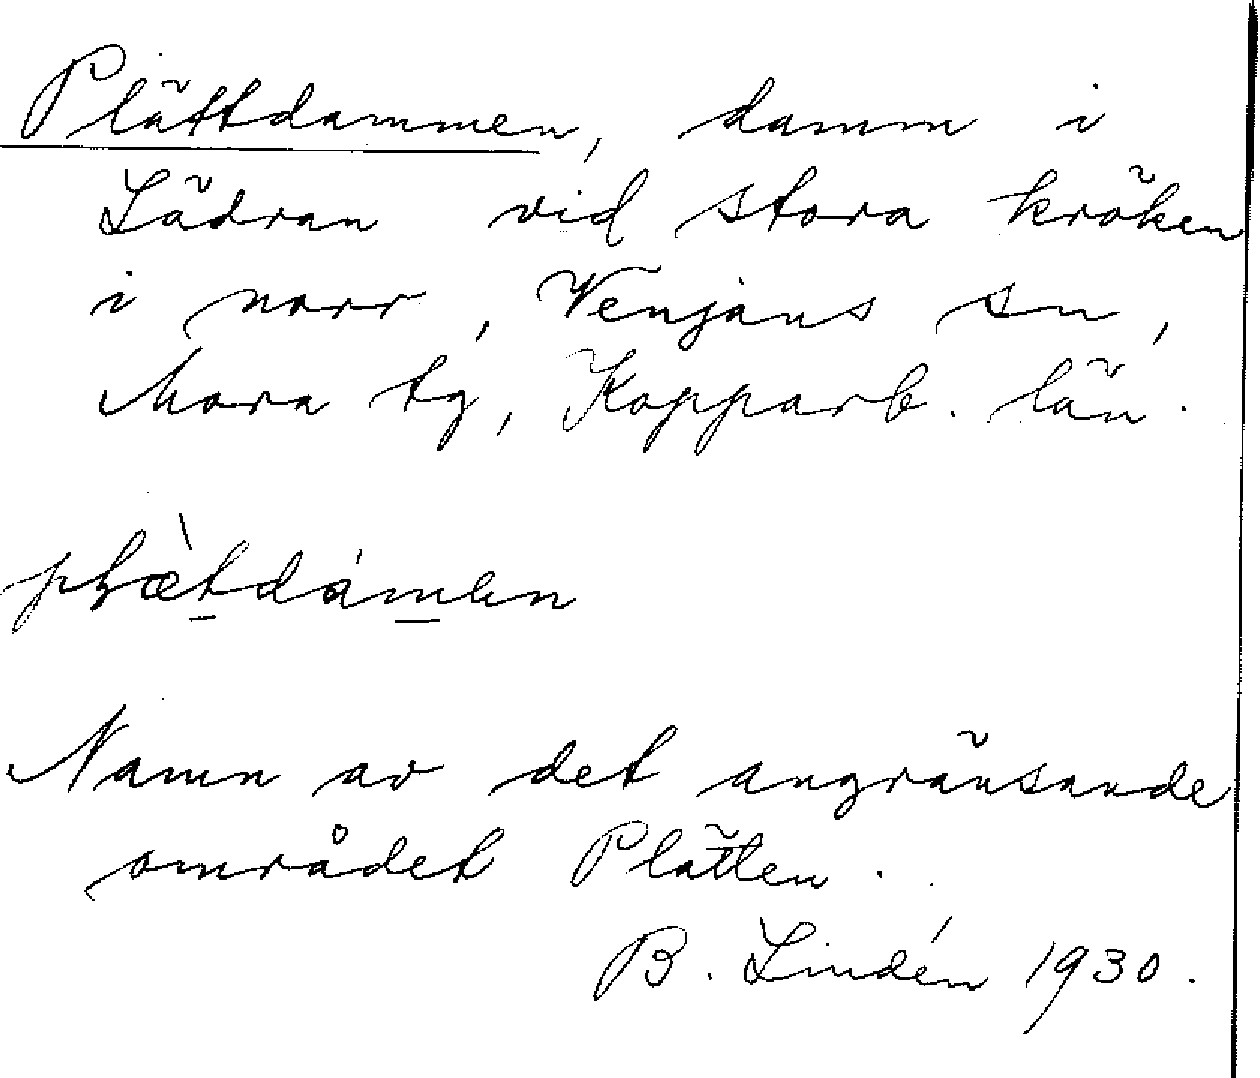 Plättdammen, damm i
Lädran vid stora kröken
i norr, Venjans sn,
Mora tg, Kopparb. län.
Namn av det angränsande
området Plätten.
B. Lindén 1930.